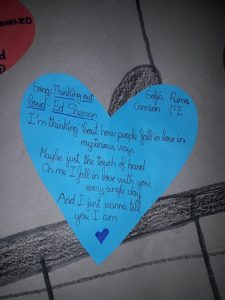 Song: Thinking out
loud - Ed Sheeran
Sofía Rama
Carrión 1ºE
I'm thinking 'bout how people fall in love in
mysterious ways
Maybe just the touch of hand
Oh me I fall in love with you
every single day
And I just wanna tell
you I am